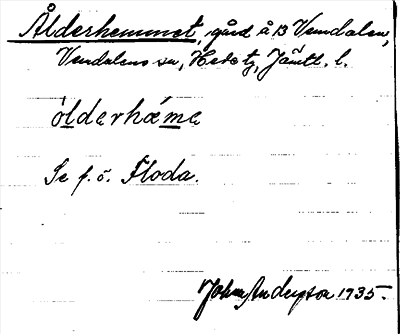 Ålderhemmet, gård å 13 Vemdalen,
Vemdalens sn, Hede tg, Jämtl. l.
ólderhæ̀me
Se f. ö. Floda.
John Anderson 1935.